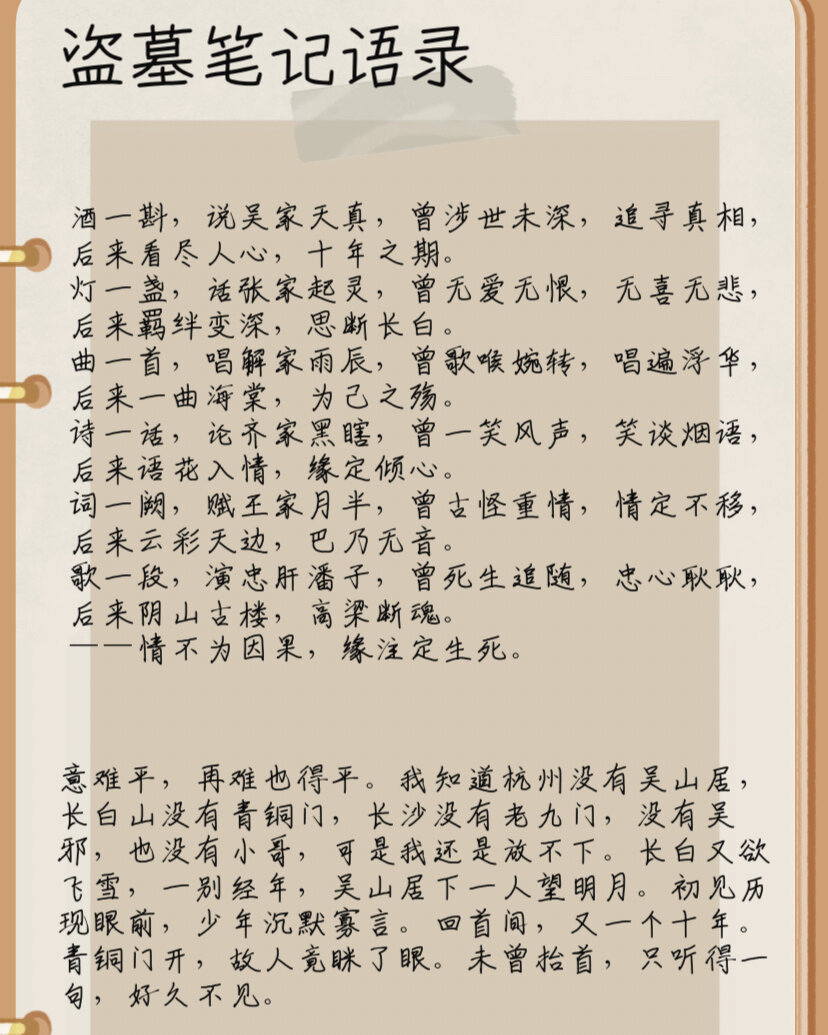 盗墓笔记语录
酒一斟，说吴家天真，曾涉世未深，追寻真相，
后来看尽人心，十年之期。
灯一盏，话张家起灵，曾无爱无恨，无喜无悲，
后来羁绊变深，思断长白。
曲一首，唱解家雨辰，曾歌喉婉转，唱遍浮华，
后来一曲海棠，为己之殇。
诗一话，论齐家黑瞎，曾一笑风声，笑谈烟语，
后来语花入情，缘定倾心。
词一阙，赋王家月半，曾古怪重情，情定不移，
后来云彩天边，巴乃无音。
歌一段，演忠肝潘子，曾死生追随，忠心耿耿，
后来阴山古楼，高梁断魂。
——情不为因果，缘注定生死。
意难平，再难也得平。我知道杭州没有吴山居，
长白山没有青铜门，长沙没有老九门，没有吴
邪，也没有小哥，可是我还是放不下。长白又欲
飞雪，一别经年，吴山居下一人望明月。初见历
现眼前，少年沉默寡言。回首间，又一个十年。
青铜门开，故人竟眯了眼。未曾抬首，只听得一
句，好久不见。